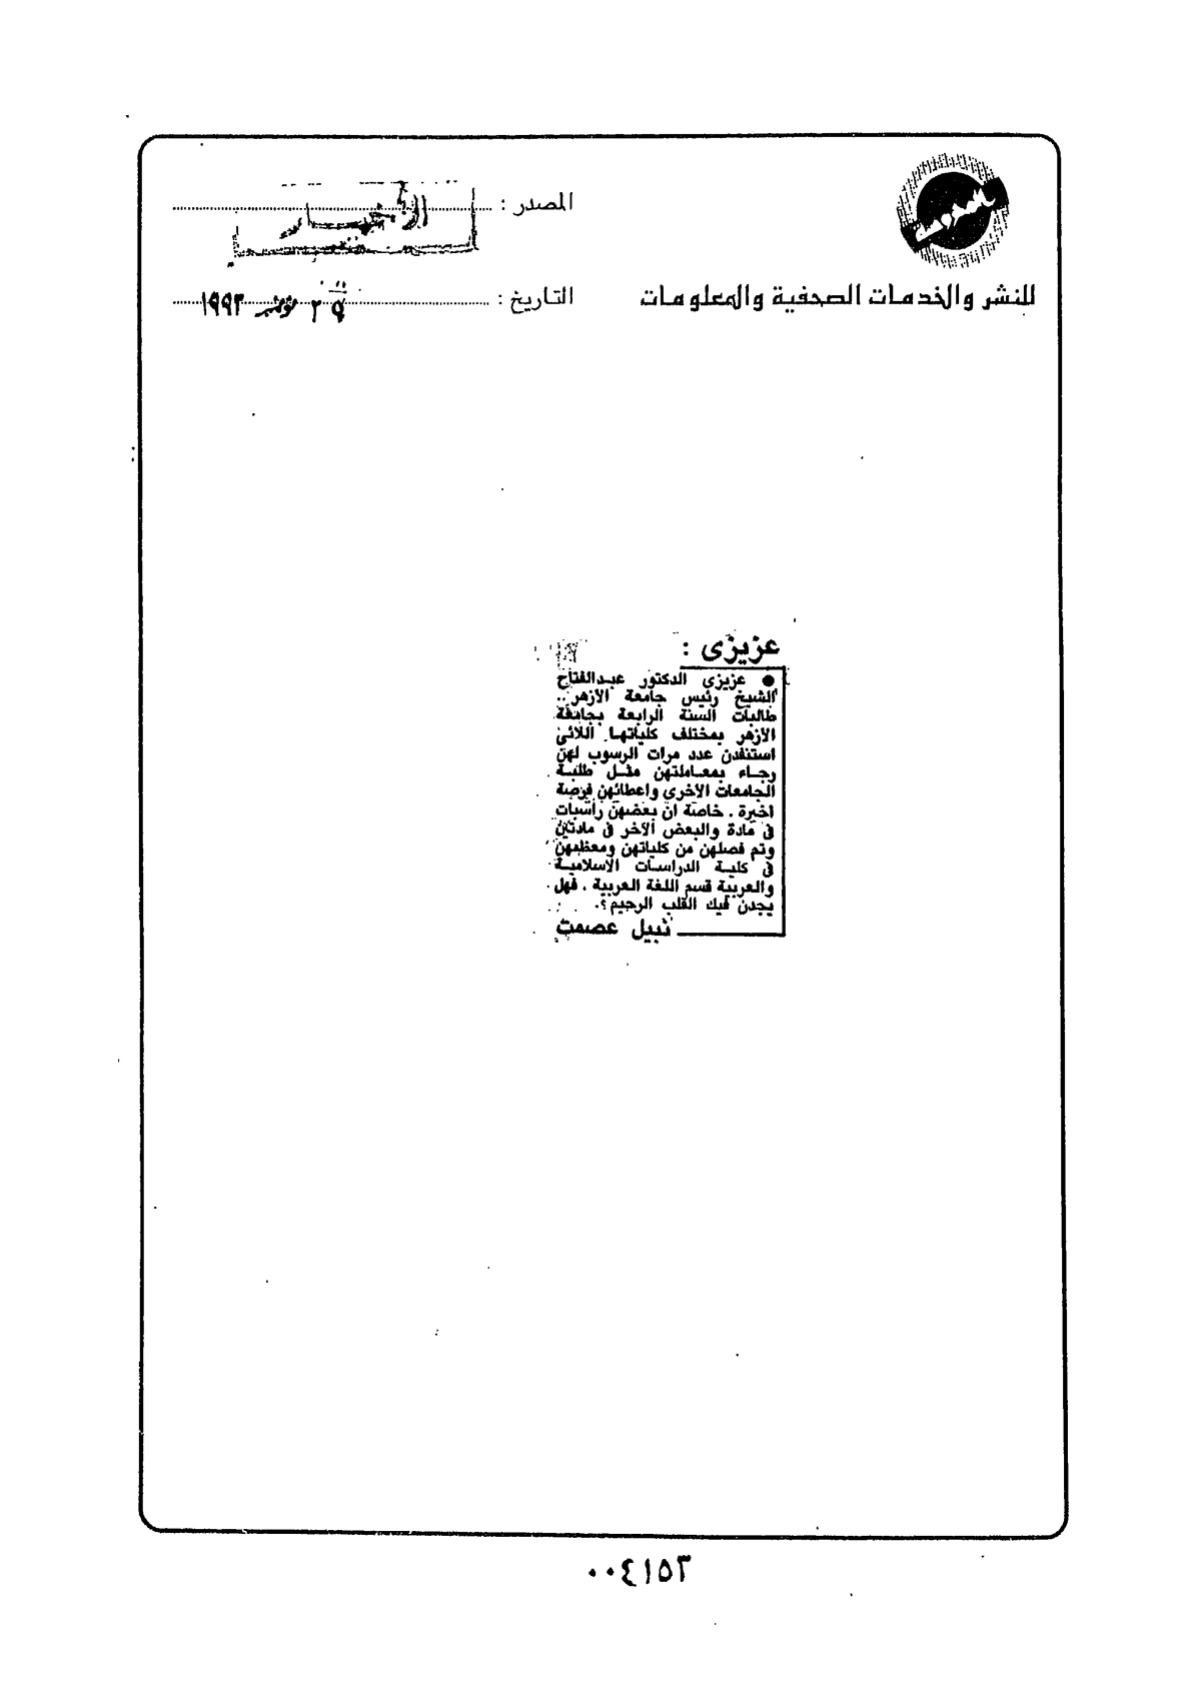 المصدر : الأخبار
للنشر والخدمات الصحفية والمعلومات
التاريخ : ٢٩ نوفمبر ١٩٩٣
عزيزى :
● عزيزى الدكتور عبدالفتاح
الشيخ رئيس جامعة الأزهر ..
طالبات السنة الرابعة بجامعة
الأزهر بمختلف كلياتها اللائى
استنفدن عدد مرات الرسوب لهن
رجاء بمعاملتهن مثل طلبة
الجامعات الأخرى واعطائهن فرصة
اخيرة . خاصة ان بعضهن راسبات
فى مادة والبعض الآخر فى مادتين
وتم فصلهن من كلياتهن ومعظمهن
فى كلية الدراسات الاسلامية
والعربية قسم اللغة العربية . فهل
يجدن فيك القلب الرحيم ؟.
نبيل عصمت
٠٠٤١٥٣